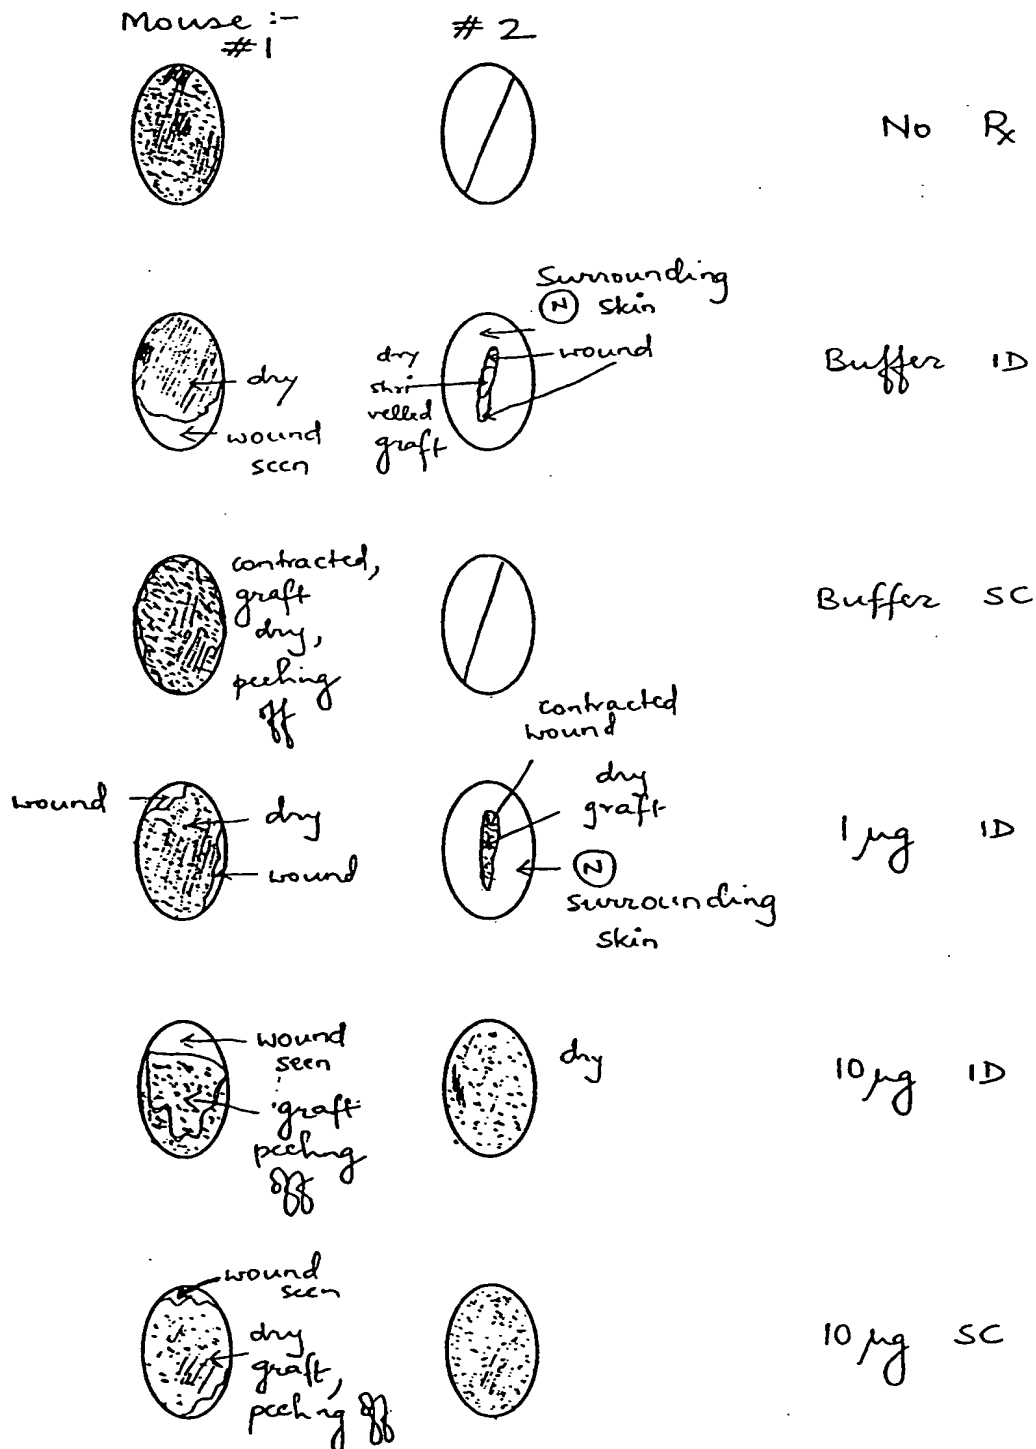 Mouse :-
#1
#2
No Rx
Surrounding
N skin
wound
dry
shri
velled
graft
dry
wound
seen
Buffer ID
contracted,
graft
dry,
peeling
off
Buffer SC
contracted
wound
wound
dry
wound
dry
graft
N
surrounding
skin
1 µg ID
wound
seen
graft
peeling
off
dry
10 µg ID
wound
seen
dry
graft,
peeling off
10 µg SC